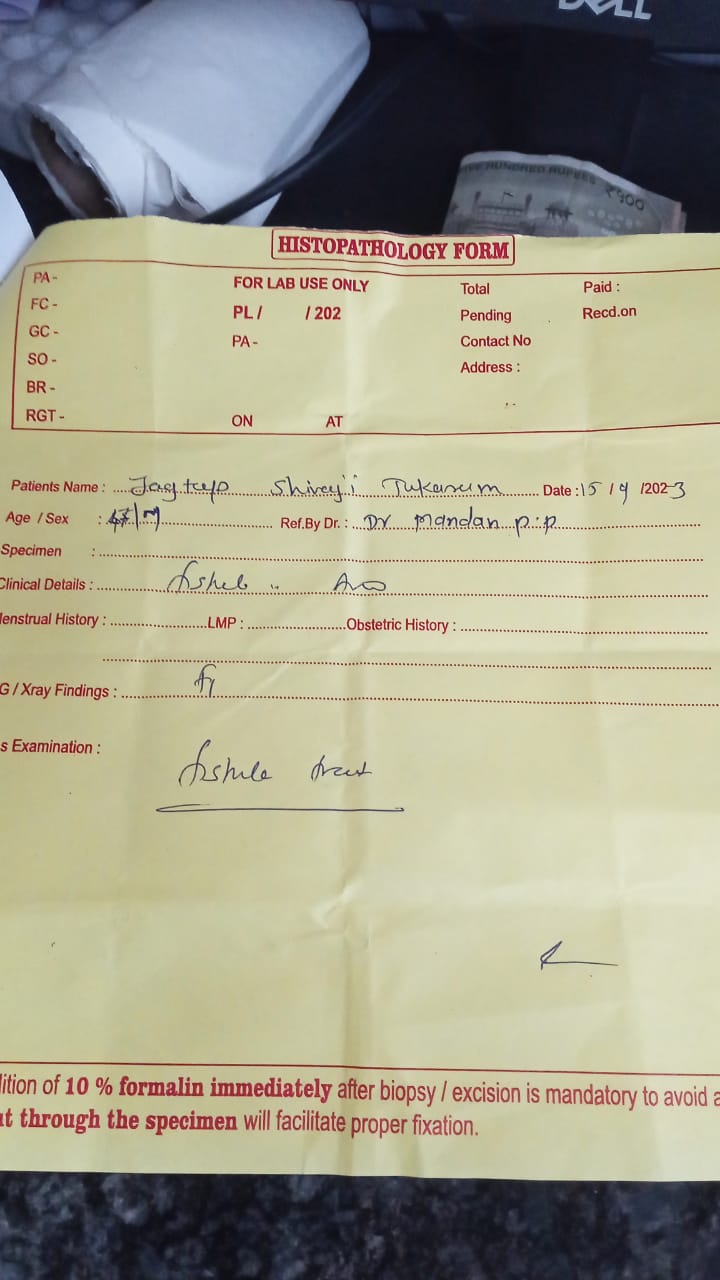 DELL
FIVE HUNDRED RUPEES ₹500
HISTOPATHOLOGY FORM
PA - FOR LAB USE ONLY Total Paid :
FC - PL / / 202 Pending Recd.on
GC - PA - Contact No
SO - Address :
BR -
RGT - ON AT
Patients Name : Jagtap Shivaji Tukaram Date : 15 / 9 / 2023
Age / Sex : /M Ref.By Dr. : Dr mandan p.p
Specimen :
Clinical Details :
Menstrual History : LMP : Obstetric History :
G / Xray Findings :
s Examination :
fistula tract
dition of 10 % formalin immediately after biopsy / excision is mandatory to avoid a
ut through the specimen will facilitate proper fixation.